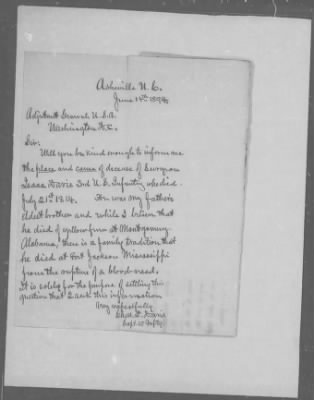 Asheville N. C.
June 1st 1894
Adjutant General U.S.A.
Washington D.C.
Sir:
Will you be kind enough to inform me
the place and cause of decease of Surgeon
Isaac Davis 3rd U.S. Infantry who died
July 21st 1814. He was my father's
eldest brother and while I believe that
he died of yellow fever at Montgomery
Alabama, there is a family tradition that
he died at Fort Jackson Mississippi
from the rupture of a blood vessel.
It is solely for the purpose of settling this
question that I ask this information
Very respectfully
Davis